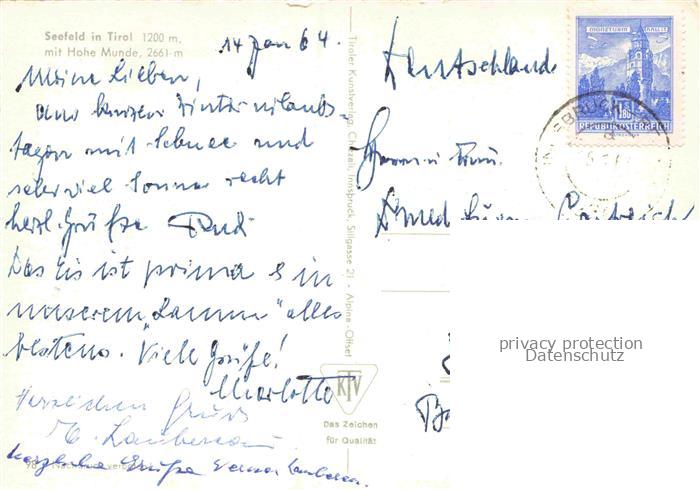 Seefeld in Tirol 1200 m,
mit Hohe Munde, 2661 m
14 Jan 64.
Meine Lieben,
aus kurzen Winterurlaubs-
tagen mit Schnee und
sehr viel Sonne recht
herzl. Grüße Rudi
Das Eis ist prima & in
unserem „Lamm" alles
bestens. Viele Grüße!
Charlotte
Herzlichen Gruss
herzliche Grüße Werner
Tiroler Kunstverlag Chizzali, Innsbruck, Sillgasse 21 - Alpina-Offset
KTV
Das Zeichen
für Qualität
MÜNZTURM HALL I.T.
1.80
REPUBLIK ÖSTERREICH
Deutschland
Herrn u. Frau
Dr. med.
privacy protection
Datenschutz